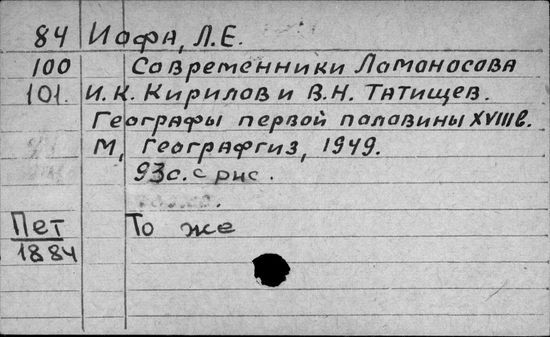 84 Иофа, Л.Е.
100 Современники Ломоносова
101. И.К. Кирилов и В.Н. Татищев.
Географы первой половины XVIII в.
М, Географгиз, 1949.
93с. с рис.
Пет То же
1884